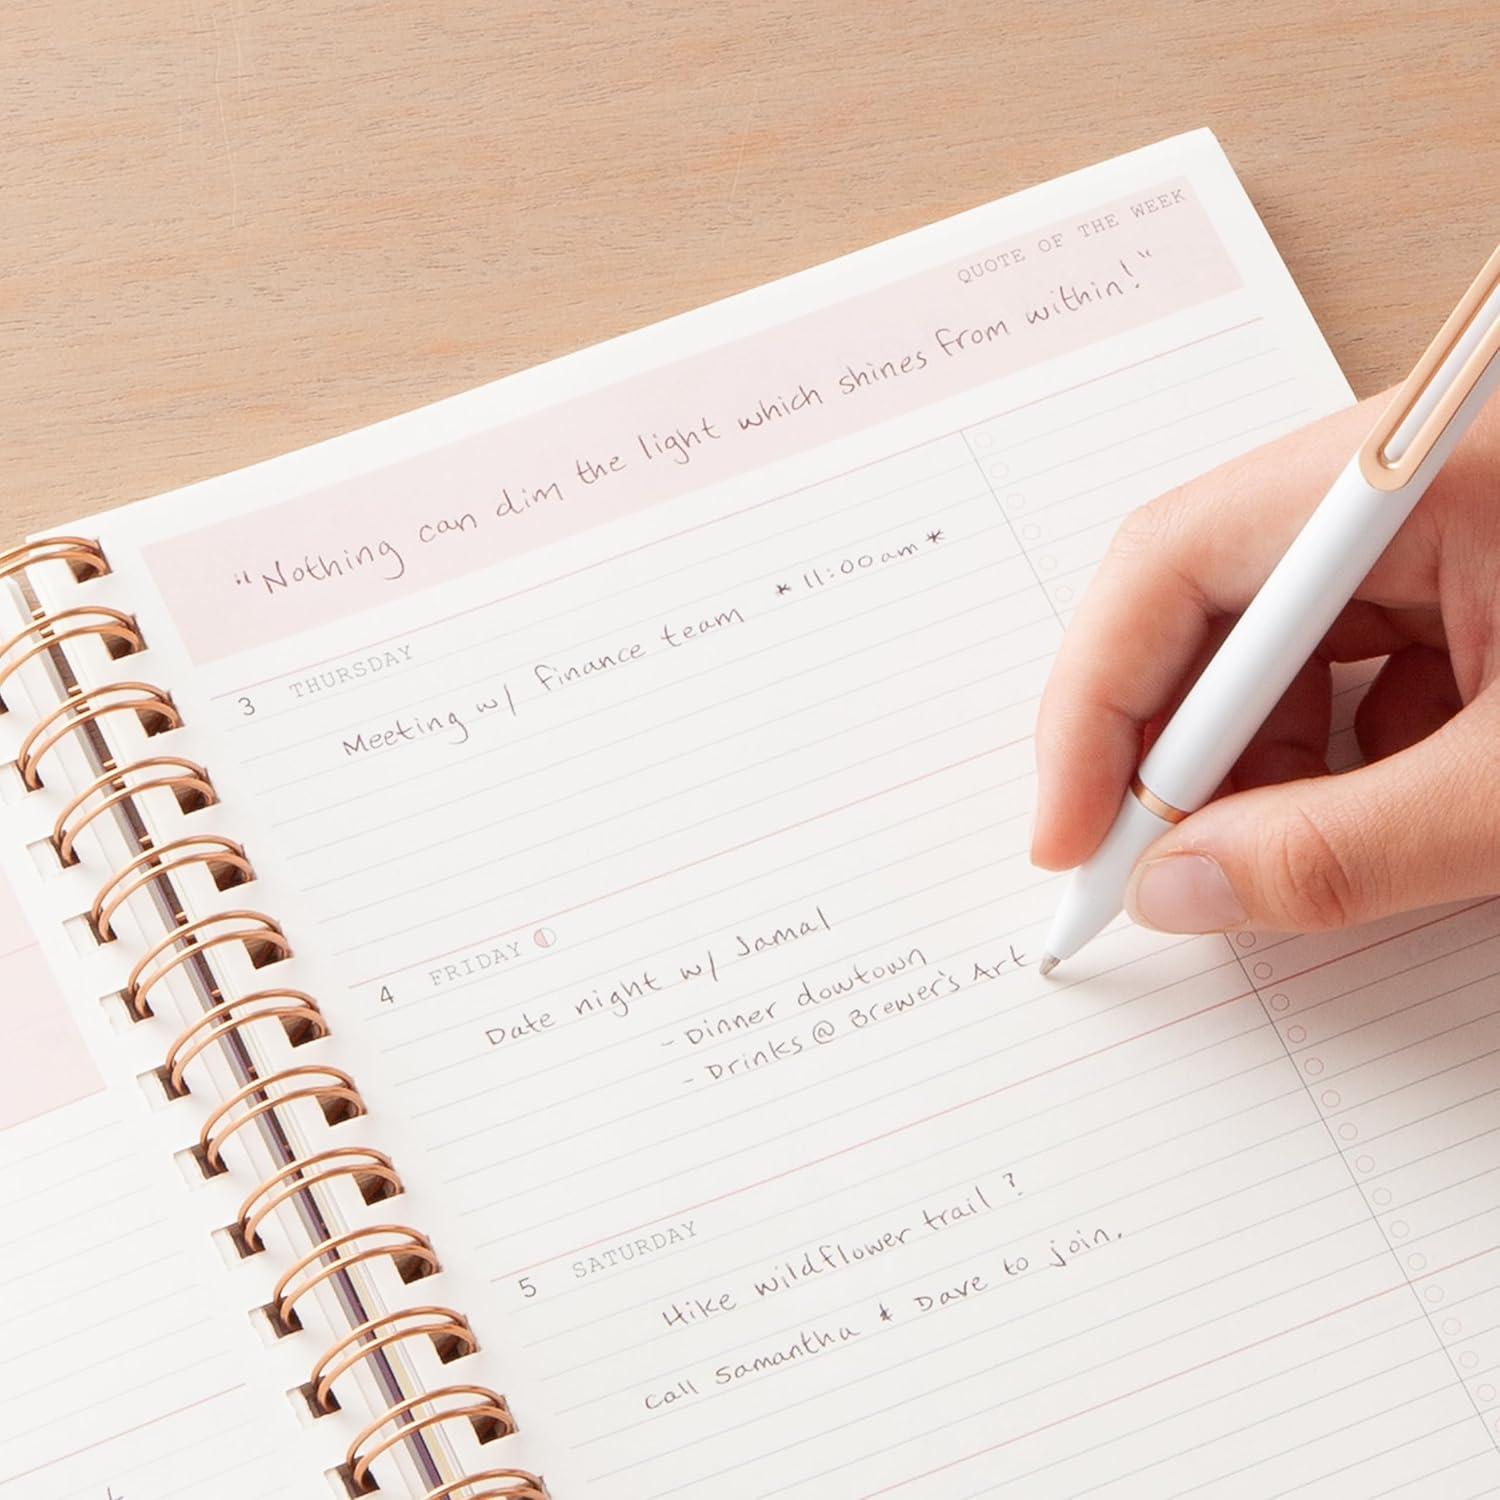 QUOTE OF THE WEEK
"Nothing can dim the light which shines from within!"
3 THURSDAY
Meeting w/ finance team *11:00am*
4 FRIDAY
Date night w/ Jamal
- Dinner dowtown
- Drinks @ Brewer's Art
5 SATURDAY
Hike wildflower trail ?
Call Samantha & Dave to join.